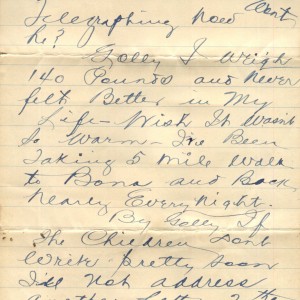 Telegraphing Now Cant
he?
Golly I Weigh
140 Pounds and Never
felt Better in My
Life - Wish It Wasnt
So Warm - I've Been
Taking 5 Mile Walk
to Bona and Back
Nearly Every Night.
By Golly If
The Children Dont
Write Pretty Soon
I'll Not address
Another Letter